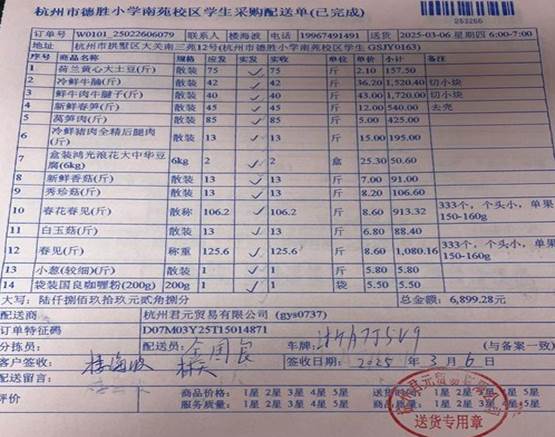 杭州市德胜小学南苑校区学生采购配送单(已完成)
263266
订单号 W0101_25022606079 联系人 楼海波 电话 19967491491 送货 2025-03-06 星期四 6:00-7:00
地址 杭州市拱墅区大关南三苑12号(杭州市德胜小学南苑校区学生 GSJY0163)
序号 商品名称 规格 应发 实发 实收 单位 单价 金额 备注
1 荷兰黄心大土豆(斤) 散装 75 75 斤 2.10 157.50
2 冷鲜牛腩(斤) 散装 42 42 斤 36.20 1,520.40 切小块
3 鲜牛肉牛腱子(斤) 散装 40 40 斤 43.00 1,720.00 切小块
4 新鲜春笋(斤) 散装 45 45 斤 12.00 540.00 去壳
5 莴笋肉(斤) 散装 85 85 斤 5.00 425.00
6 冷鲜猪肉全精后腿肉(斤) 散装 13 13 斤 15.00 195.00
7 盒装鸿光浪花大中华豆腐(6kg) 6kg 2 2 盒 25.30 50.60
8 新鲜香菇(斤) 散装 13 13 斤 7.00 91.00
9 秀珍菇(斤) 散装 13 13 斤 8.20 106.60
10 春花春见(斤) 散称 106.2 106.2 斤 8.60 913.32 333个，个头小，单果150-160g
11 白玉菇(斤) 散装 13 13 斤 6.80 88.40
12 春见(斤) 称重 125.6 125.6 斤 8.60 1,080.16 333个，个头小，单果150-160g
13 小葱(较细)(斤) 散装 1 1 斤 5.80 5.80
14 袋装国良咖喱粉(200g) 200g 1 1 袋 5.50 5.50
大写： 陆仟捌佰玖拾玖元贰角捌分 总金额： 6,899.28元
配送商 杭州君元贸易有限公司 (gys0737)
订单特征码 D07M03Y25T15014871
分拣员： 配送员： 金国良 车牌： (与备案一致)
客户签收： 楼海波 签收日期： 2025年3月6日
配送留言：
评价 商品价格： 1星 2星 3星 4星 5星 送货 3星 4星 5星
服务质量： 1星 2星 3星 4星 5星 商品 3星 4星 5星
杭州君元贸易有限公司
送货专用章